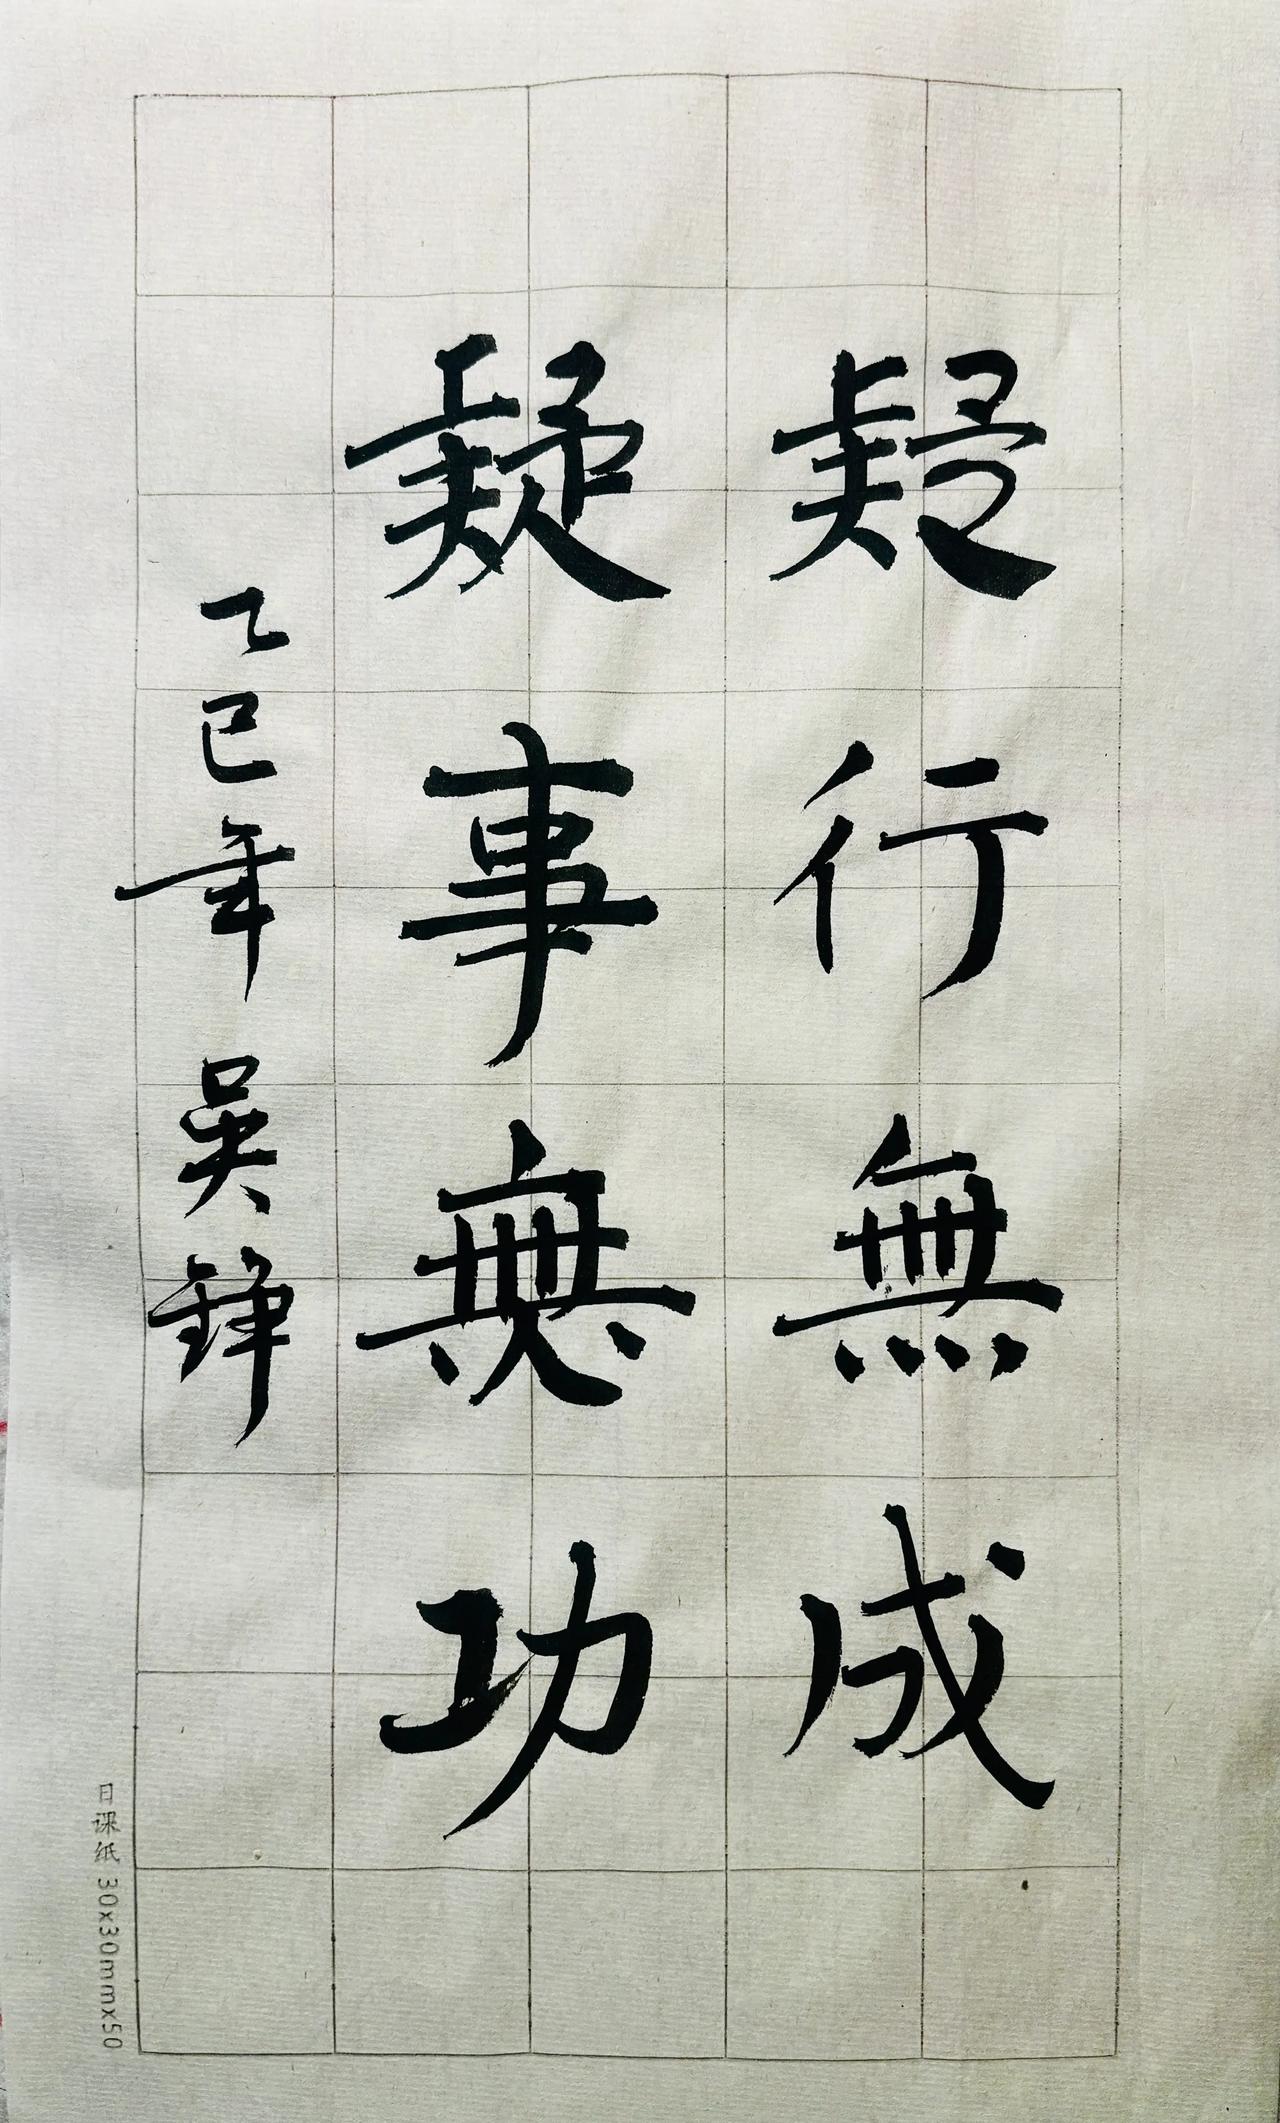 疑行無成
疑事無功
乙巳年 吴鋒
日课纸 30x30mmx50